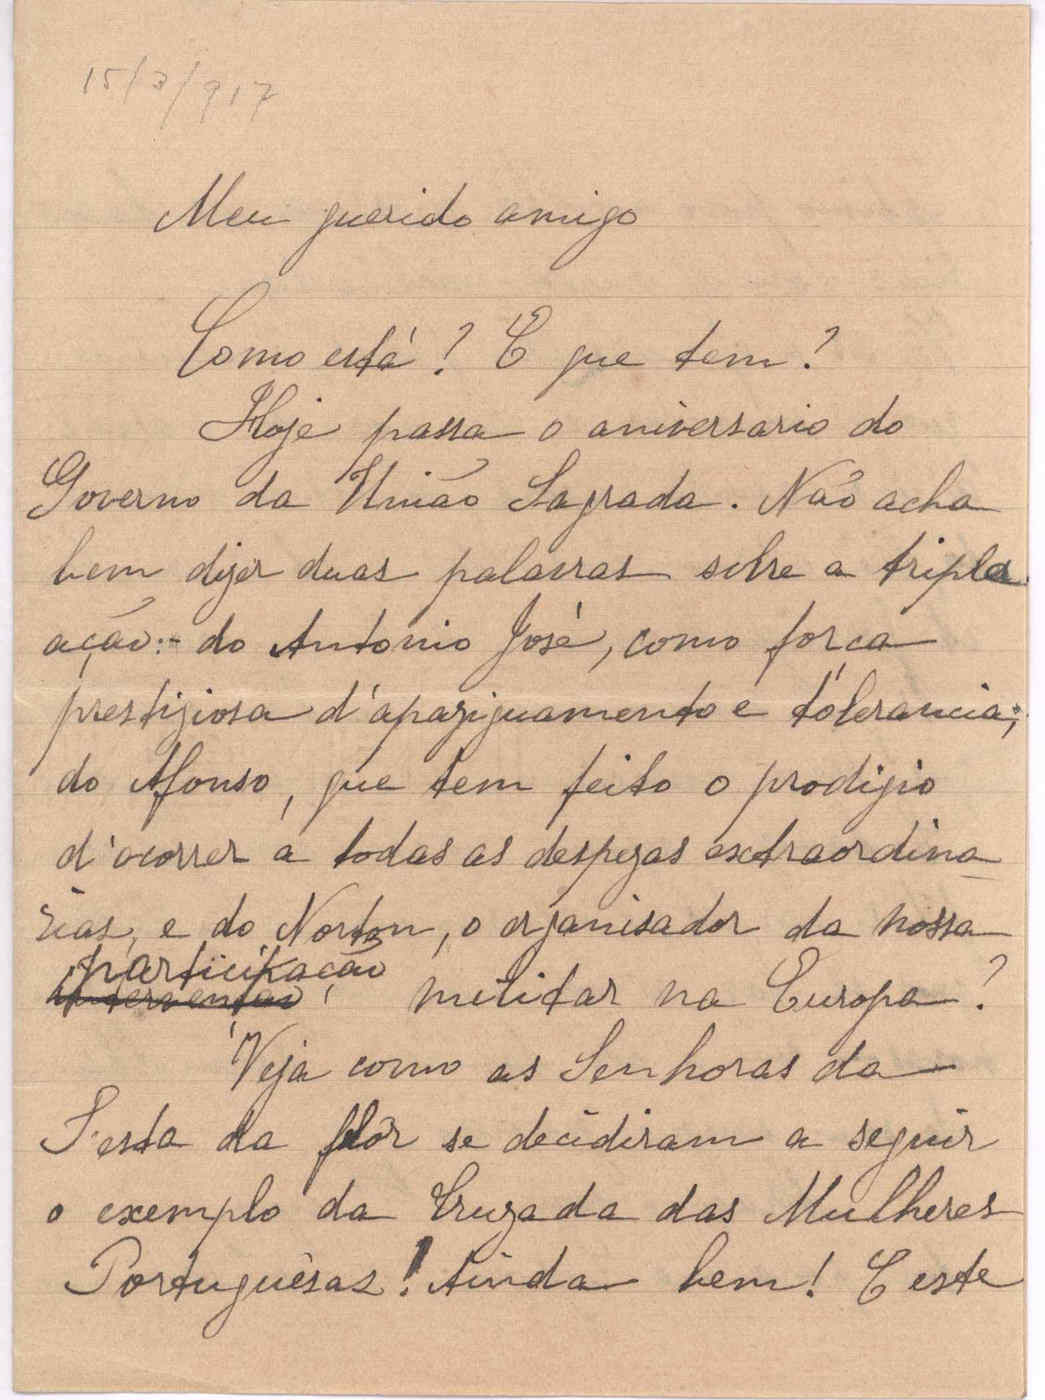 15/3/917
Meu querido amigo
Como está? E que tem?
Hoje passa o aniversario do
Governo da União Sagrada. Não acha
bem dizer duas palavras sobre a tripla
ação:- do Antonio José, como força
prestigiosa d'apaziguamento e tolerancia;
do Afonso, que tem feito o prodigio
d'ocorrer a todas as despezas extraordina
rias, e do Norton, o organisador da nossa
participação
intervenção militar na Europa?
Veja como as Senhoras da
Festa da flôr se decidiram a seguir
o exemplo da Cruzada das Mulheres
Portuguêsas! Ainda bem! E este